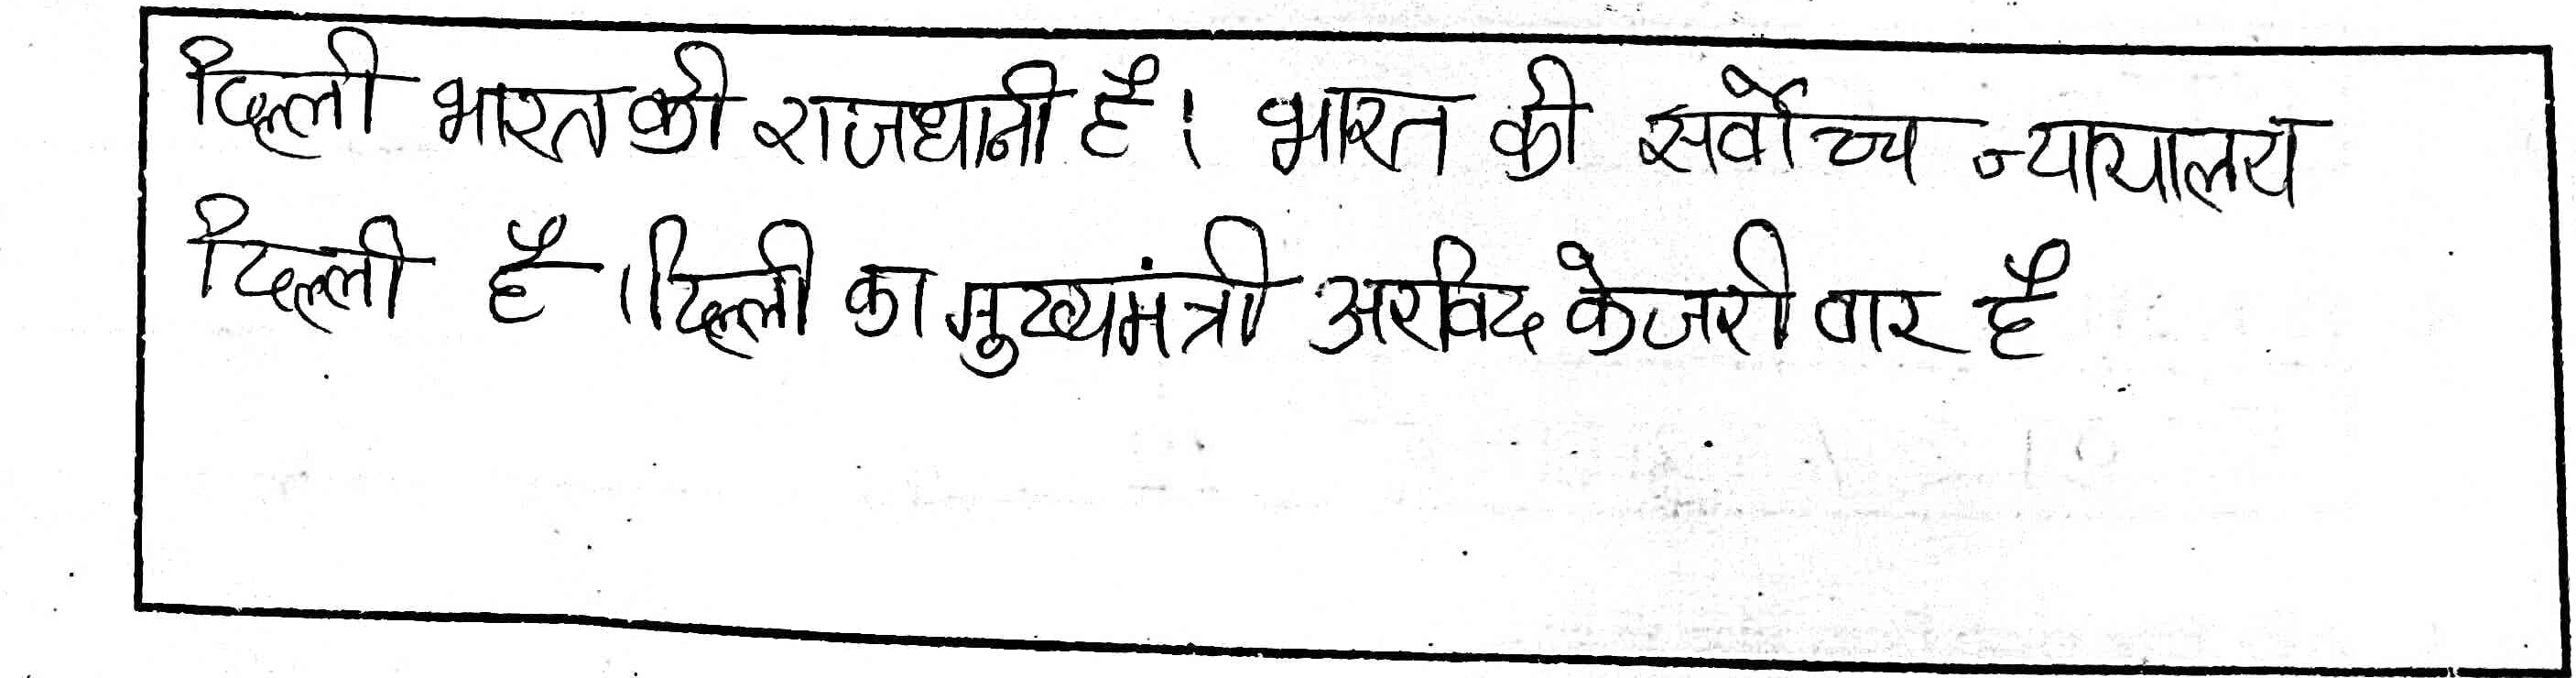 दिल्ली भारत की राजधानी है। भारत की सर्वोच्च न्यायालय
दिल्ली है। दिल्ली का मुख्यमंत्री अरविद केजरीवार है